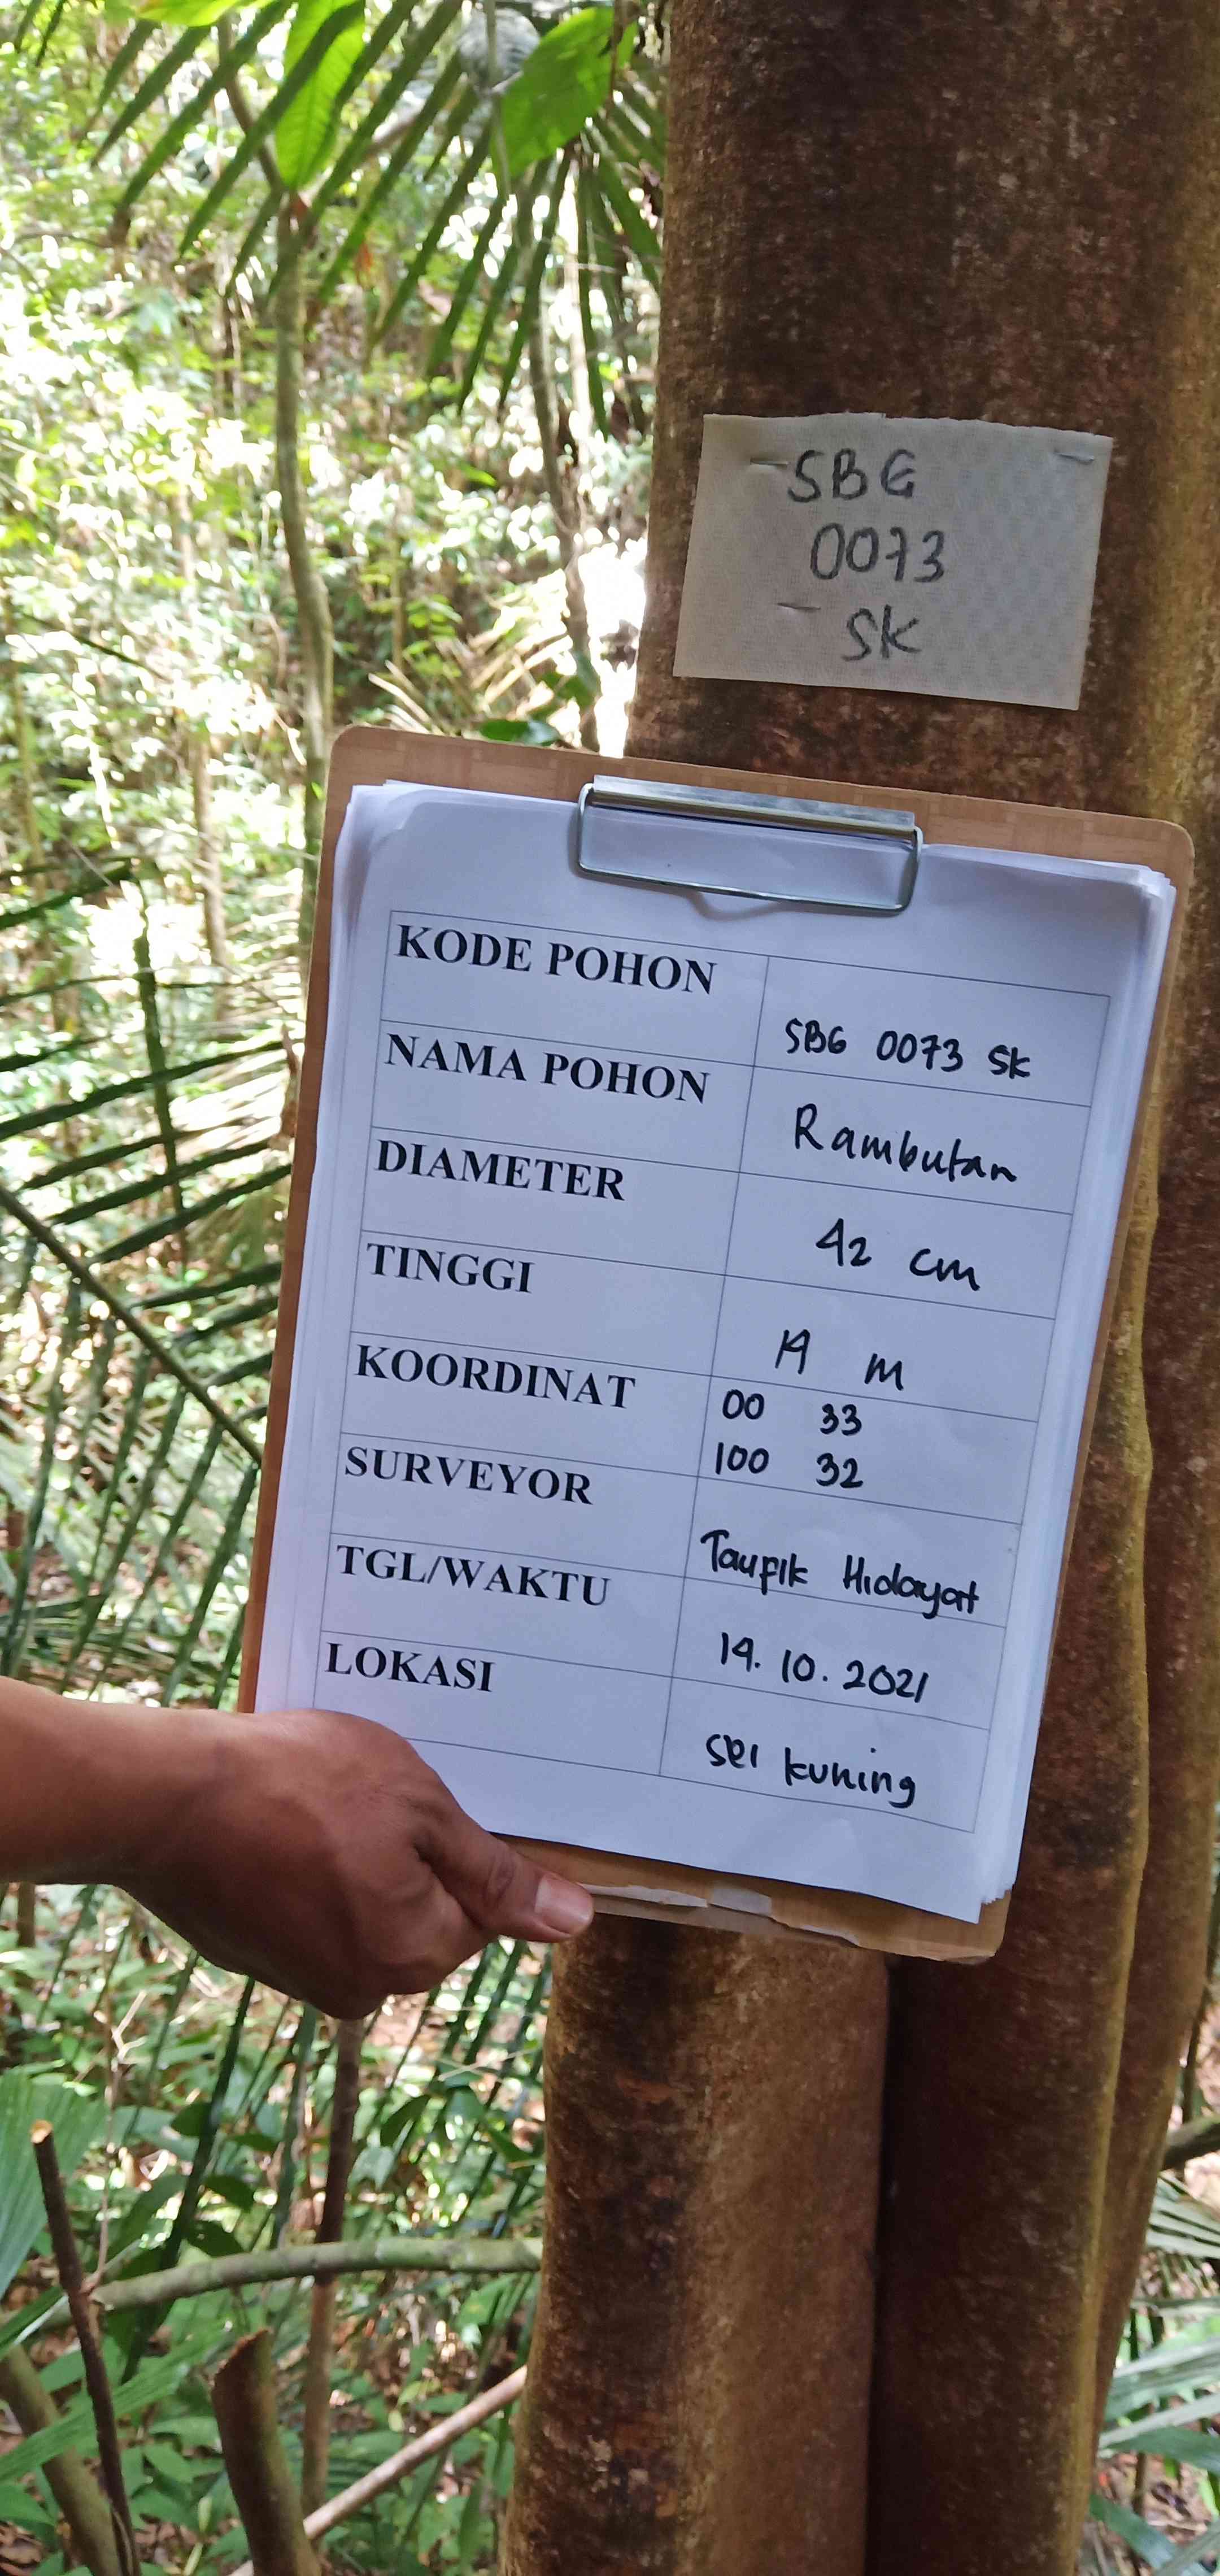 SBG
0073
SK
KODE POHON SBG 0073 SK
NAMA POHON Rambutan
DIAMETER 42 cm
TINGGI 14 m
KOORDINAT 00 33
100 32
SURVEYOR Taufik Hidayat
TGL/WAKTU 14.10.2021
LOKASI sei kuning